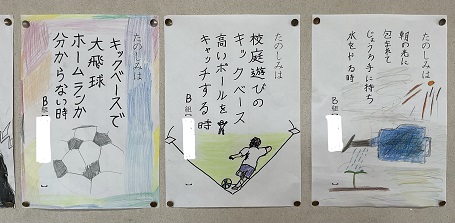 たのしみは
キックベースで
大飛球
ホームランか
分からない時
B組【
】
たのしみは
校庭遊びの
キックベース
高いボールを
キャッチする時
B組【
】
たのしみは
朝の光に
包まれて
じょうろ手に持ち
水をやる時
B組【
】